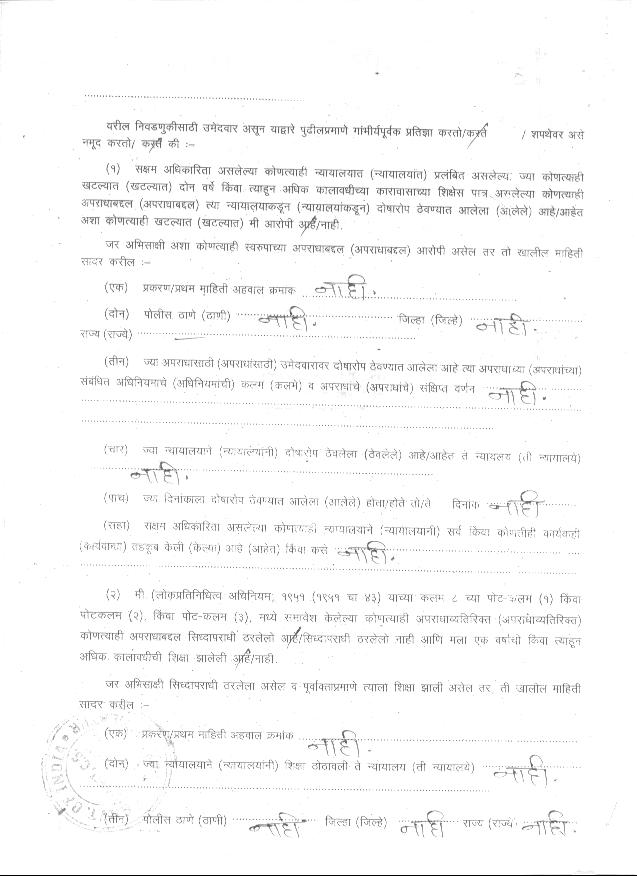 वरील निवडणुकीसाठी उमेदवार असून याद्वारे पुढीलप्रमाणे गांभीर्यपूर्वक प्रतिज्ञा करतो/करते / शपथेवर असे
नमूद करतो/ करते की :–
(१) सक्षम अधिकारिता असलेल्या कोणत्याही न्यायालयात (न्यायालयांत) प्रलंबित असलेल्य: ज्या कोणत्याही
खटल्यात (खटल्यात) दोन वर्षे किंवा त्याहून अधिक कालावधीच्या कारावासाच्या शिक्षेस पात्र असलेल्या कोणत्याही
अपराधाबद्दल (अपराधाबद्दल) त्या न्यायालयाकडून (न्यायालयांकडून) दोषारोप ठेवण्यात आलेला (आलेले) आहे/आहेत
अशा कोणत्याही खटल्यात (खटल्यात) मी आरोपी आहे/नाही.
जर अभिसाक्षी अशा कोणत्याही स्वरुपाच्या अपराधाबद्दल (अपराधाबद्दल) आरोपी असेल तर तो खालील माहिती
सादर करील :–
(एक) प्रकरण/प्रथम माहिती अहवाल क्रमाक नाही.
(दोन) पोलीस ठाणे (ठाणी) नाही. जिल्हा (जिल्हे) नाही.
राज्य (राज्ये)
(तीन) ज्या अपराधासाठी (अपराधांसाठी) उमेदवारावर दोषारोप ठेवण्यात आलेला आहे त्या अपराधाच्या (अपराधांच्या)
संबंधित अधिनियमाचे (अधिनियमांची) कलम (कलमे) व अपराधाचे (अपराधांचे) संक्षिप्त वर्णन नाही.
(चार) ज्या न्यायालयाने (न्यायालयांनी) दोषारोप ठेवलेला (ठेवलेले) आहे/आहेत ते न्यायालय (ती न्यायालये)
नाही.
(पाच) ज्या दिनांकाला दोषारोप ठेवण्यात आलेला (आलेले) होता/होते तो/ते दिनांक नाही
(सहा) सक्षम अधिकारिता असलेल्या कोणत्याही न्यायालयाने (न्यायालयानी) सर्व किंवा कोणतीही कार्यवाही
(कार्यवाह्या) तहकूब केली (केल्या) आहे (आहेत) किंवा कसे नाही.
(२) मी (लोकप्रतिनिधित्व अधिनियम, १९५१ (१९५१ चा ४३) याच्या कलम ८ च्या पोट-कलम (१) किंवा
पोटकलम (२), किंवा पोट-कलम (३), मध्ये समावेश केलेल्या कोणत्याही अपराधाव्यतिरिक्त (अपराधाव्यतिरिक्त)
कोणत्याही अपराधाबद्दल सिध्दापराधी ठरलेलो आहे/सिध्दापराधी ठरलेलो नाही आणि मला एक वर्षाची किंवा त्याहून
अधिक कालावधीची शिक्षा झालेली आहे/नाही.
जर अभिसाक्षी सिध्दापराधी ठरलेला असेल व पूर्वोक्ताप्रमाणे त्याला शिक्षा झाली असेल तर, ती खालील माहिती
सादर करील :–
(एक) प्रकरण/प्रथम माहिती अहवाल क्रमांक नाही.
(दोन) ज्या न्यायालयाने (न्यायालयांनी) शिक्षा ठोठावली ते न्यायालय (ती न्यायालये) नाही.
(तीन) पोलीस ठाणे (ठाणी) नाही जिल्हा (जिल्हे) नाही राज्य (राज्ये) नाही.
OF INDIA